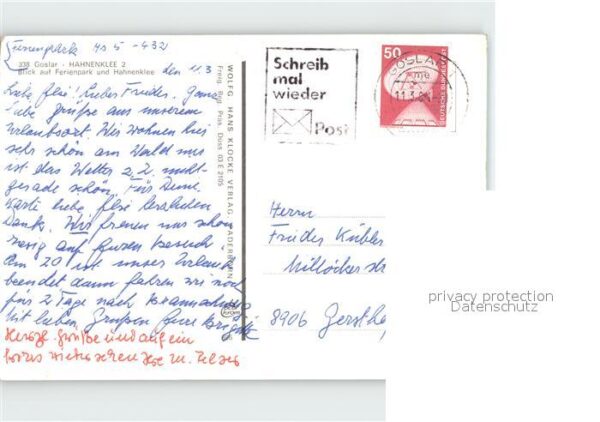 Ferienpark HS 5 - 432
338 Goslar - HAHNENKLEE 2
Blick auf Ferienpark und Hahnenklee
den 11.3
Liebe Elsi! Lieber Frieder. Ganz
liebe Grüße aus unserem
Urlaubsort. Wir wohnen hier
sehr schön am Wald nur
ist das Wetter z.Z. nicht
gerade schön. Für Deine
Karte liebe Elsi herzlichen
Dank. Wir freuen uns schon
riesig auf Euren Besuch.
Am 20 ist unser Urlaub
beendet dann fahren wir noch
für 2 Tage nach
Mit lieben Grüßen Eure Brigitte
Herzl. Grüße und auf ein
frohes Wiedersehen
WOLFG. HANS KLOCKE VERLAG, PADERBORN
Freig. Reg. Präs. Düss. 03 E 2105
Schreib
mal
wieder
Post
GOSLAR 1
11.3.8
50
DEUTSCHE BUNDESPOST
Herrn
Frieder Kübler
Millöcker str
8906 Gerstho
privacy protection
Datenschutz